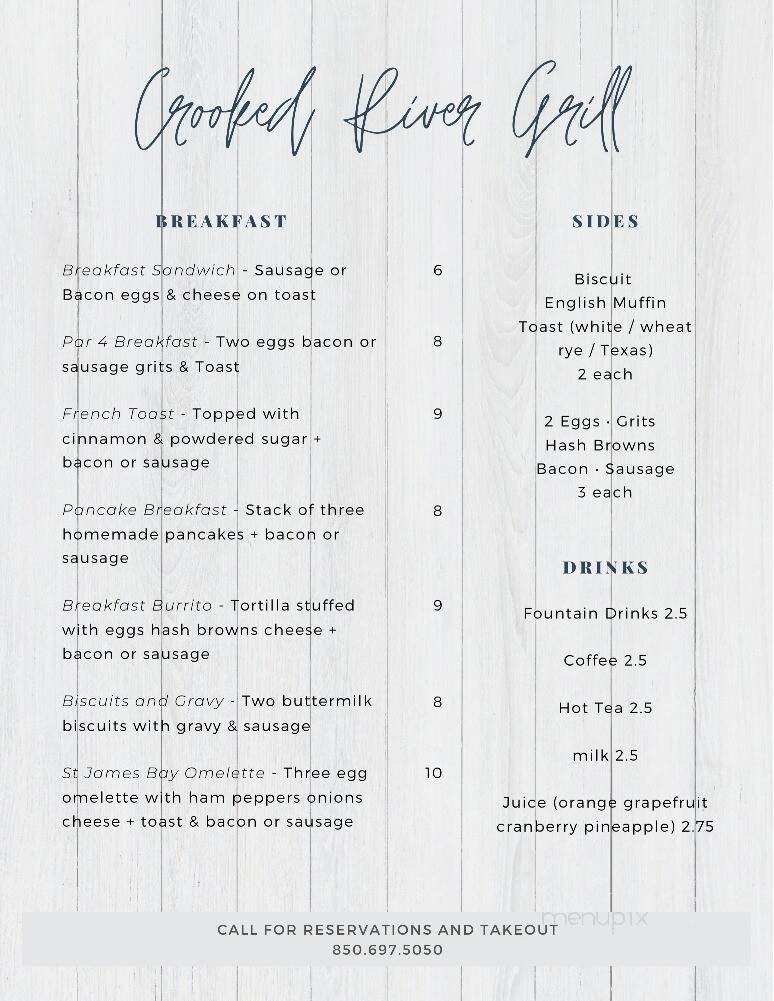 Crooked River Grill
BREAKFAST
Breakfast Sandwich - Sausage or 6
Bacon eggs & cheese on toast
Par 4 Breakfast - Two eggs bacon or 8
sausage grits & Toast
French Toast - Topped with 9
cinnamon & powdered sugar +
bacon or sausage
Pancake Breakfast - Stack of three 8
homemade pancakes + bacon or
sausage
Breakfast Burrito - Tortilla stuffed 9
with eggs hash browns cheese +
bacon or sausage
Biscuits and Gravy - Two buttermilk 8
biscuits with gravy & sausage
St James Bay Omelette - Three egg 10
omelette with ham peppers onions
cheese + toast & bacon or sausage
SIDES
Biscuit
English Muffin
Toast (white / wheat
rye / Texas)
2 each
2 Eggs · Grits
Hash Browns
Bacon · Sausage
3 each
DRINKS
Fountain Drinks 2.5
Coffee 2.5
Hot Tea 2.5
milk 2.5
Juice (orange grapefruit
cranberry pineapple) 2.75
menupix
CALL FOR RESERVATIONS AND TAKEOUT
850.697.5050